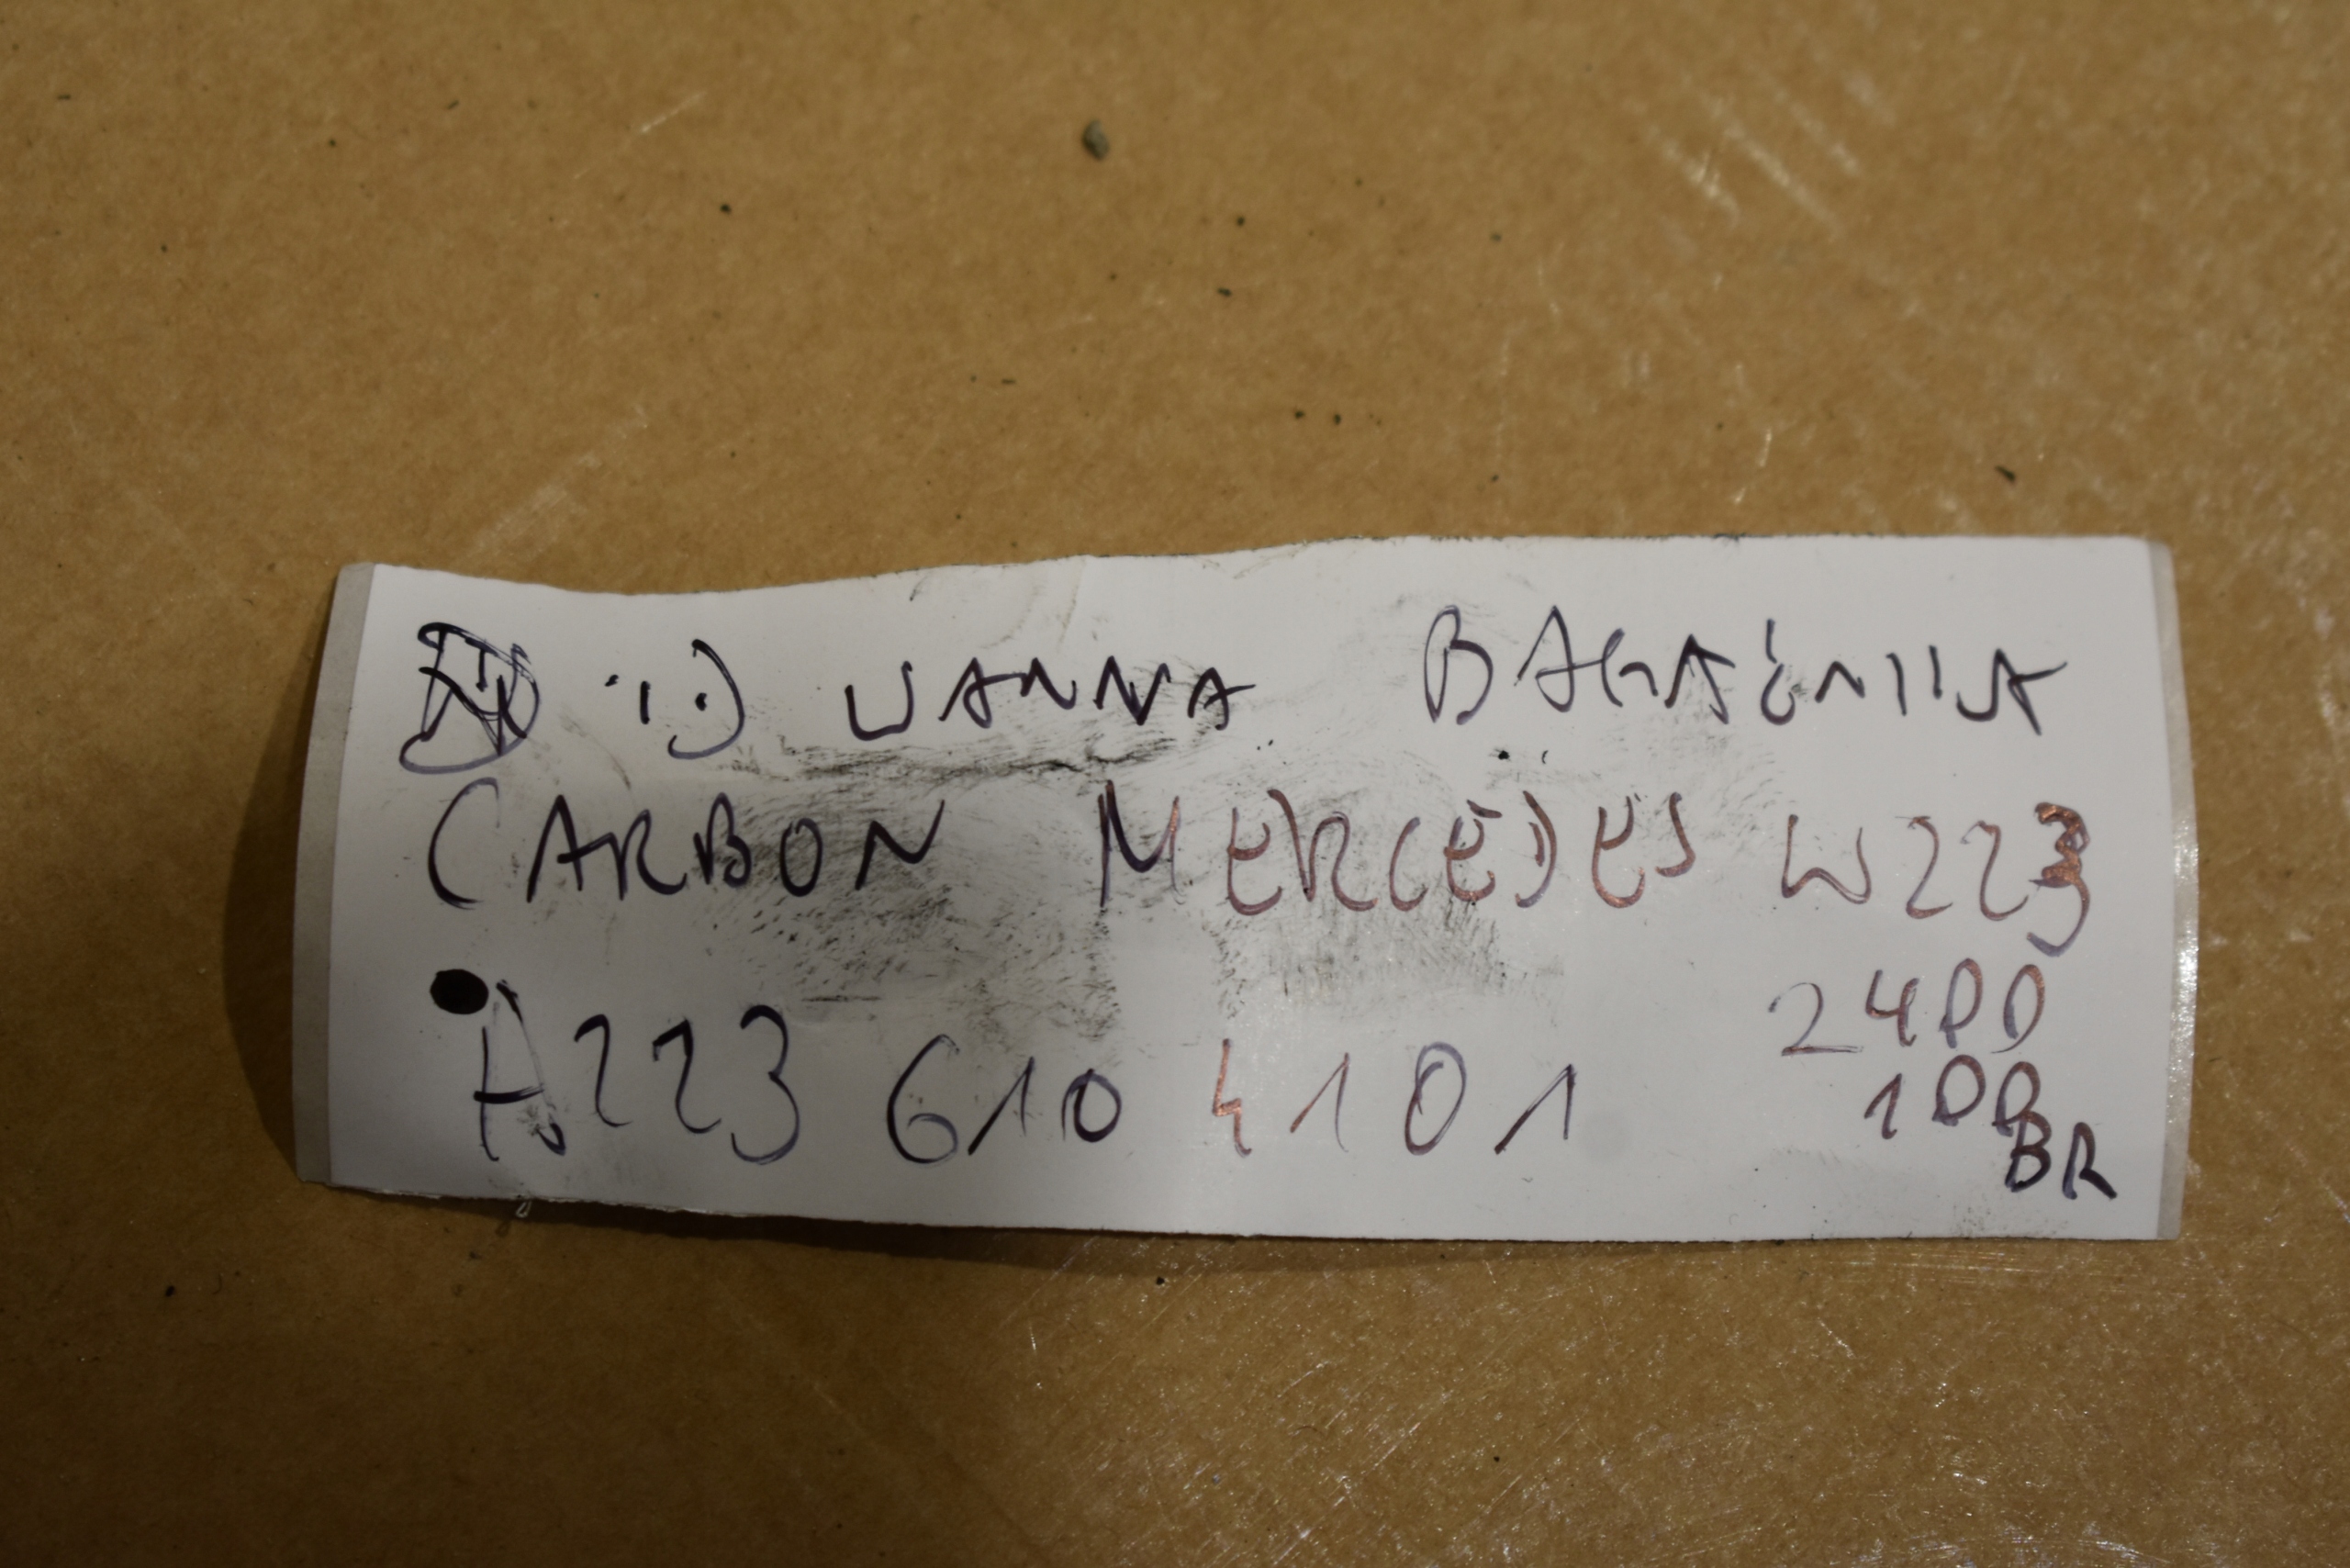 :) WANNA BAGAŻNIKA
CARBON MERCEDES W223
A223 610 4101
2400
100
BR